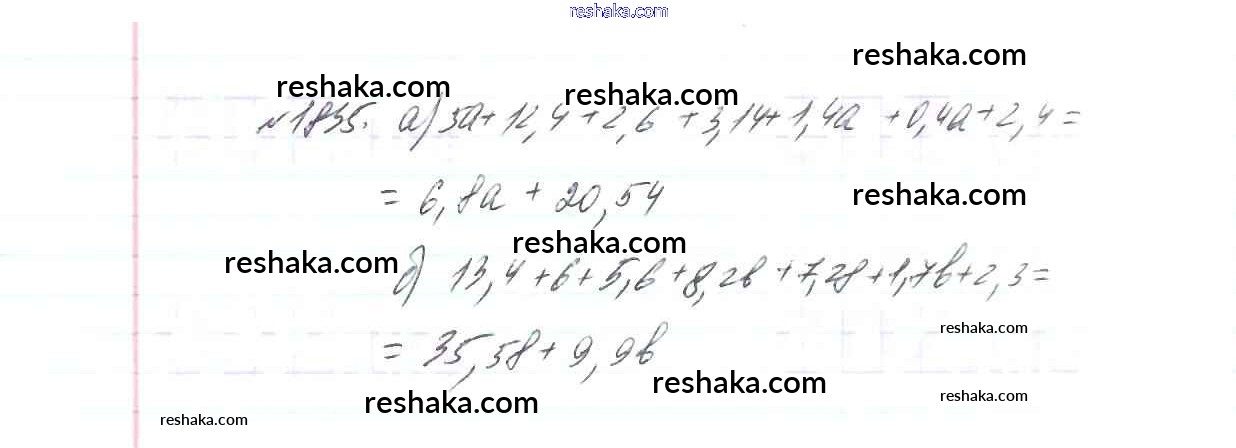 reshaka.com
reshaka.com
reshaka.com
reshaka.com
№1835. а) 5a+12,4+2,6+3,14+1,4a+0,4a+2,4=
= 6,8a + 20,54
reshaka.com
reshaka.com
reshaka.com
б) 13,4+6+5,6+8,2b+7,28+1,7b+2,3=
reshaka.com
= 35,58+9,9b
reshaka.com
reshaka.com
reshaka.com
reshaka.com